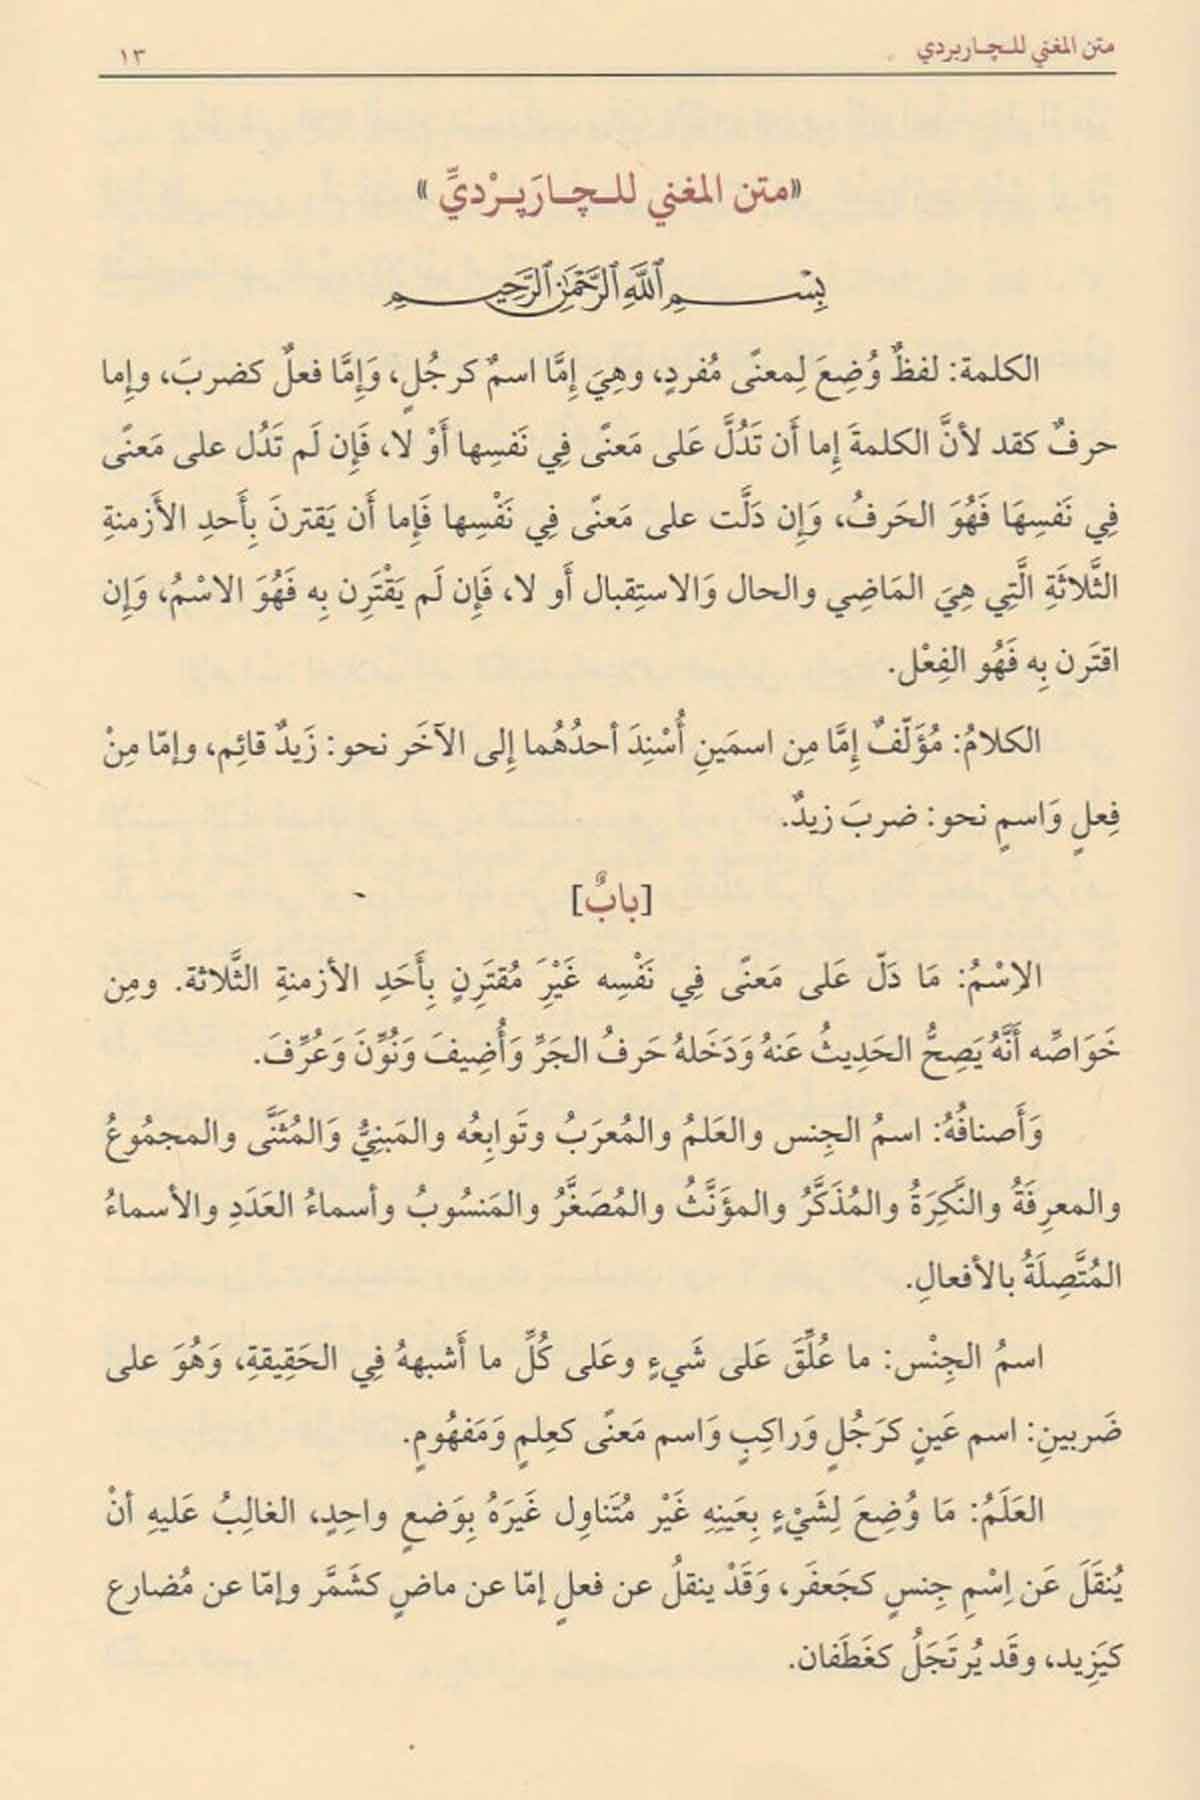 متن المغني للچاربردي ١٣
«متن المغني للچارَپرْديِّ»
بِسْمِ اللَّهِ الرَّحْمَٰنِ الرَّحِيمِ
الكلمة: لفظٌ وُضِعَ لِمعنًى مُفردٍ، وهِيَ إِمَّا اسمٌ كرجُلٍ، وَإِمَّا فعلٌ كضربَ، وإما
حرفٌ كقد لأنَّ الكلمةَ إما أَن تَدُلَّ عَلى مَعنًى فِي نَفسِها أَوْ لا، فَإِن لَم تَدُل على مَعنًى
فِي نَفسِهَا فَهُوَ الحَرفُ، وَإِن دَلَّت على مَعنًى فِي نَفْسِها فَإِما أَن يَقترنَ بِأَحدِ الأَزمنةِ
الثَّلاثَةِ الَّتِي هِيَ المَاضِي والحال وَالاستِقبال أَو لا، فَإِن لَم يَقْتَرِن بِه فَهُوَ الاسْمُ، وَإِن
اقتَرَن بِه فَهُو الفِعْل.
الكلامُ: مُؤَلّفٌ إِمَّا مِن اسمَينِ أُسْنِدَ أحدُهُما إِلى الآخَر نحو: زَيدٌ قائِم، وإمّا مِنْ
فِعلٍ وَاسمٍ نحو: ضربَ زيدٌ.
[بابٌ]
الاِسْمُ: مَا دَلّ عَلى مَعنًى فِي نَفْسِه غَيْرَِ مُقتَرِنٍ بِأَحَدِ الأزمنةِ الثَّلاثة. ومِن
خَوَاصِّه أَنَّهُ يَصِحُّ الحَدِيثُ عَنهُ وَدَخَلهُ حَرفُ الجَرِّ وَأُضِيفَ وَنُوِّنَ وَعُرِّفَ.
وَأَصنافُهُ: اسمُ الجِنس والعَلمُ والمُعرَبُ وتَوابِعُه والمَبنِيُّ وَالمُثَنَّى والمجمُوعُ
والمعرِفَةُ والنَّكِرَةُ والمُذَكَّرُ والمؤَنَّثُ والمُصَغَّرُ والمَنسُوبُ وأسماءُ العَدَدِ والأسماءُ
المُتَّصِلَةُ بالأفعالِ.
اسمُ الجِنْس: ما عُلِّقَ عَلى شَيءٍ وعَلى كُلِّ ما أَشبههُ فِي الحَقِيقةِ، وَهُوَ على
ضَربينِ: اسم عَينٍ كرَجُلٍ وَراكِبٍ وَاسم مَعنًى كعِلمٍ وَمَفهُومٍ.
العَلَمُ: مَا وُضِعَ لِشَيْءٍ بِعَينِهِ غَيْر مُتَناوِل غَيَرَهُ بِوَضعٍ واحِدٍ، الغالِبُ عَليهِ أنْ
يُنقَلَ عَن اِسْمِ جِنسٍ كجَعفَر، وَقَدْ ينقلُ عن فعلٍ إمّا عن ماضٍ كشَمَّر وإمّا عن مُضارع
كيَزِيد، وقَد يُرتَجَلُ كغَطَفان.